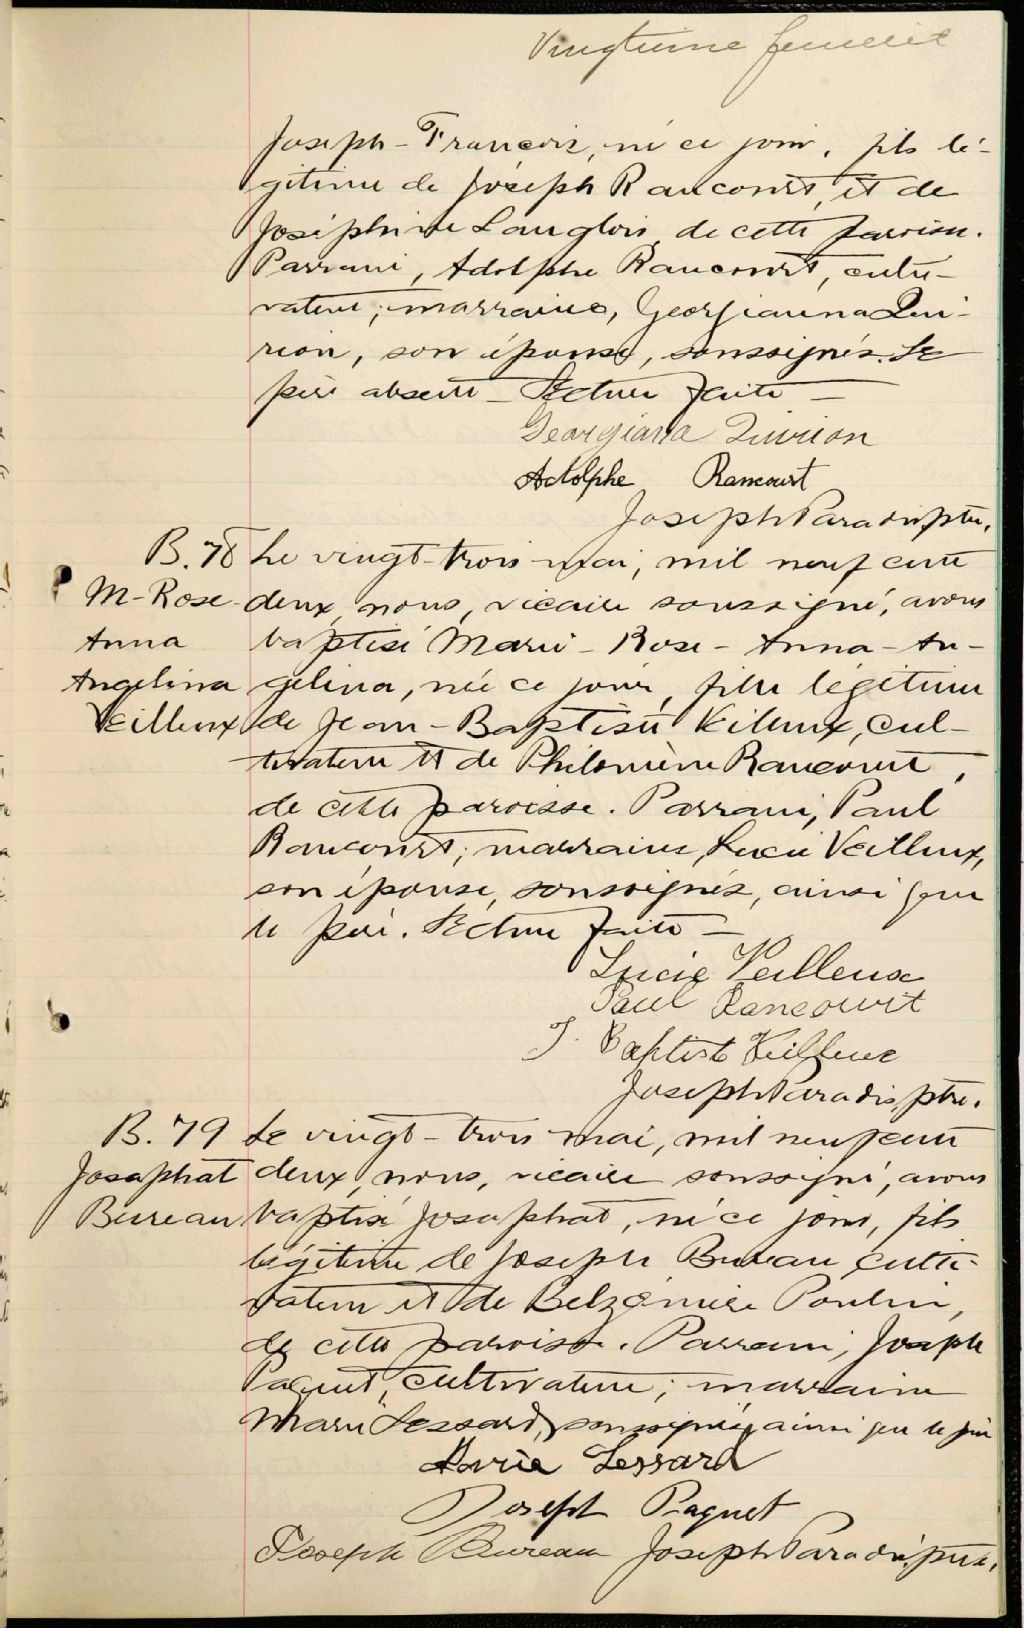 Vingtième feuillet
Joseph-François, né ce jour, fils lé-
gitime de Joseph Rancourt, et de
Joséphine Langlois de cette paroisse.
Parrain, Adolphe Rancourt, culti-
vateur; marraine, Georgianna Qui-
rion, son épouse, soussignés. Le
père absent _ Lecture faite _
Georgiana Quirion
Adolphe Rancourt
Joseph Paradis, ptre.
B. 78 Le vingt-trois mai, mil neuf cent
M-Rose- deux, nous, vicaire soussigné, avons
Anna baptisé Marie-Rose-Anna-An-
Angelina gélina, née ce jour, fille légitime
Veilleux de Jean-Baptiste Veilleux, cul-
tivateur et de Philomène Rancourt,
de cette paroisse. Parrain, Paul
Rancourt; marraine, Lucie Veilleux,
son épouse, soussignés, ainsi que
le père. Lecture faite _
Lucie Veilleux
Paul Rancourt
J. Baptiste Veilleux
Joseph Paradis, ptre.
B. 79 Le vingt-trois mai, mil neuf cent
Josaphat deux, nous, vicaire soussigné, avons
Bureau baptisé Josaphat, né ce jour, fils
légitime de Joseph Bureau culti-
vateur et de Belzémire Poulin,
de cette paroisse. Parrain, Joseph
Paquet, cultivateur; marraine
Marie Lessard, soussignés ainsi que le père
Marie Lessard
Joseph Paquet
Joseph Bureau Joseph Paradis, ptre.